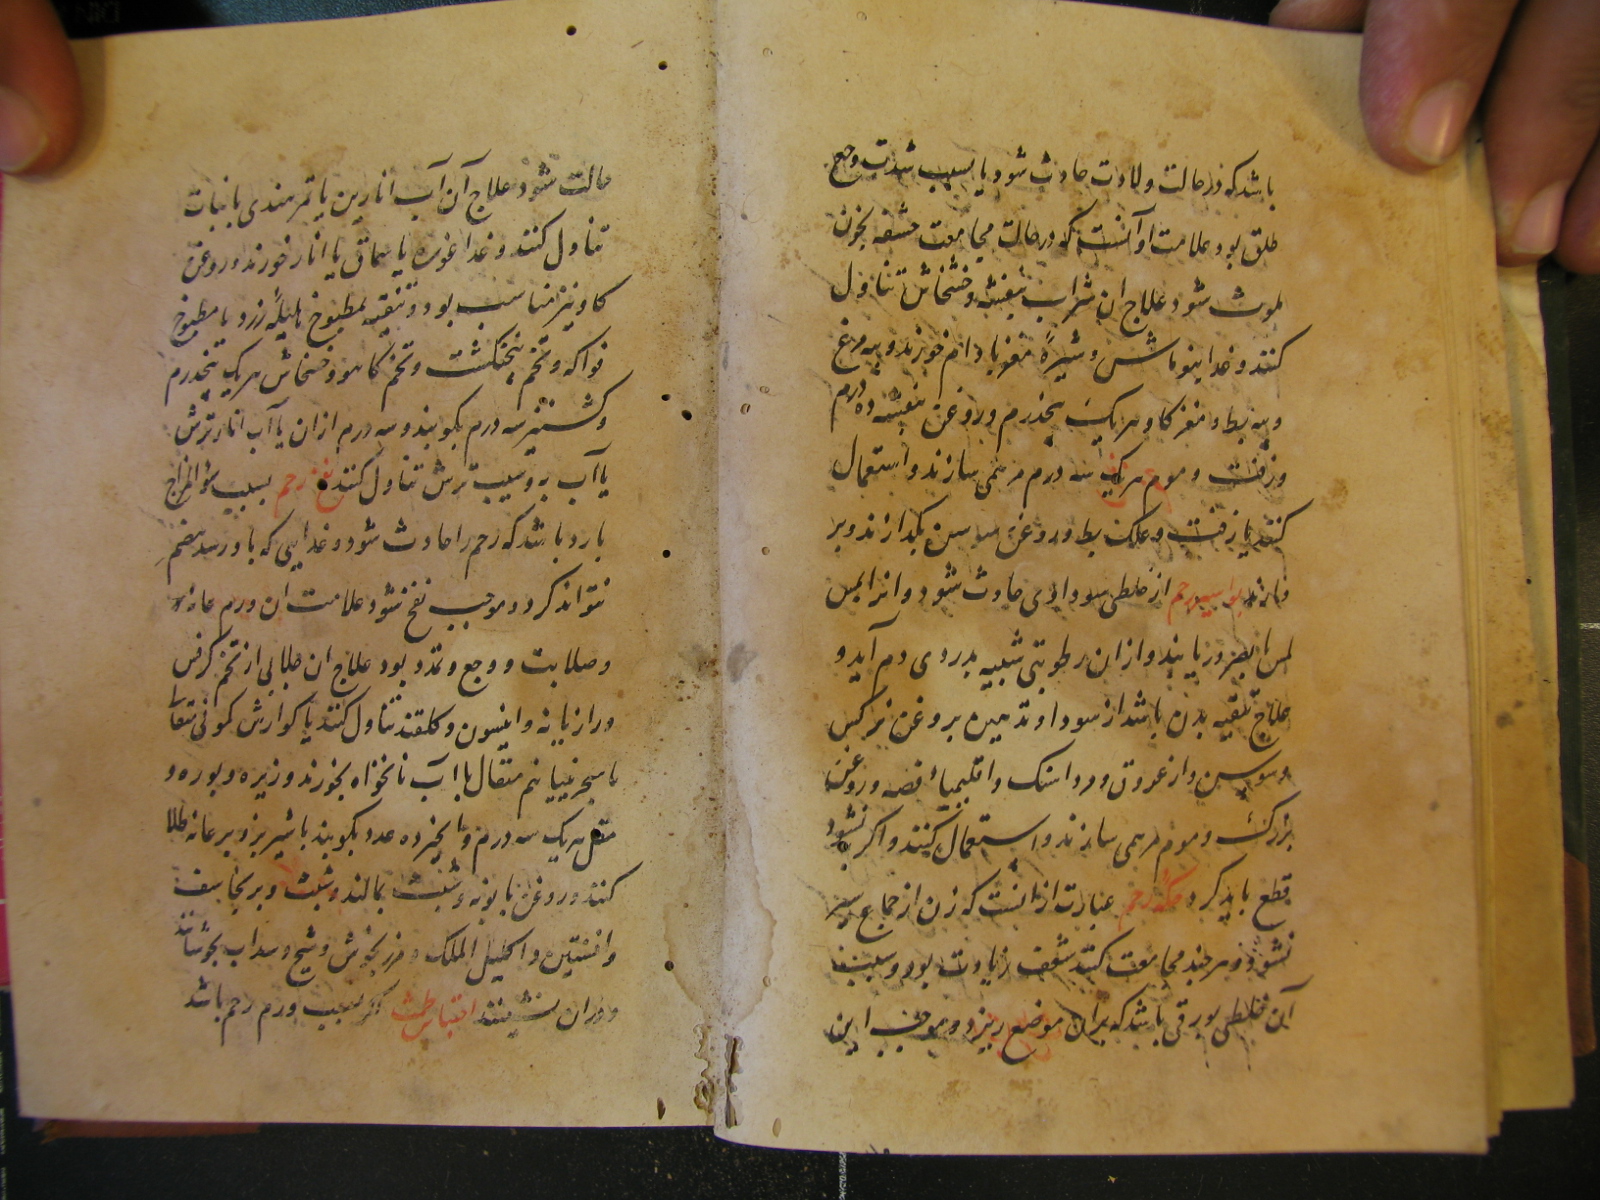 باشد که در حالت ولادت حادث شود یا بسبب شدت وجع
طلق بود علامت او آنست که در حالت مجامعت حشفه بخون
ملوث شود علاج ان شراب بنفشه و خشخاش تناول
کنند و غذا بنوماش و شیرهٔ مغز بادام خورند و پیه مرغ
و پیه بط و مغز کاو هر یک پنجدرم و روغن بنفشه ده درم
و زفت و موم هر یک سه درم مرهمی سازند و استعمال
کنند یا زفت و علک بط و روغن سوسن بکدازند و بر
بواسیر رحم از خلطی سوداوی حادث شود و انرا بلمس
یابند و از ان رطوبتی شبیه بدردی دم آید و
علاج تنقیه بدن باشد از سودا و تدهین بروغن نرکس
و سوسن و از عروق و مرداسنک و اقلیمیاء فضه و روغن
بزرک و موم مرهمی سازند و استعمال کنند و اکر به نشود
قطع باید کرد حکهٔ رحم عبارت از انست که زن از جماع سیر
نشود و هرچند مجامعت کنند شعف زیادت بود و سبب
آن خلطی بورقی باشد که بران موضع ریزد و موجب این
حالت شود علاج آن آب انارین یا تمر هندی با نبات
تناول کنند و غذا غوره یا سماق یا انار خورند و روغن
کاو نیز مناسب بود و تنقیه بمطبوخ هلیلهٔ زرد یا مطبوخ
فواکه و تخم پنجنکشت و تخم کاهو و خشخاش هر یک پنجدرم
و کشنیز سه درم بکوبند و سه درم ازان با آب انار ترش
یا آب به و سیب ترش تناول کنند نفخ رحم بسبب سوٴ المزاج
بارد باشد که رحم را حادث شود و غذایی که باو رسد هضم
نتواند کرد و موجب نفخ شود علامت ان ورم عانه
و صلابت و وجع و تمدد بود علاج ان جلابی از تخم کرفس
و رازیانه و انیسون و کلقند تناول کنند یا کوارش کمونی
یا سجزینیا نیم مثقال با آب نانخواه بخورند و زیره و بوره و
مقل هر یک سه درم و انجیر ده عدد بکوبند با شیر بز و بر عانه طلا
کنند و روغن بابونه و شبت بمالند و شبت و برنجاسف
و افسنتین و اکلیل الملک و مرزنجوش و شیح و سداب بجوشانند
و دران نشینند احتباس طمث اکر بسبب ورم رحم باشد